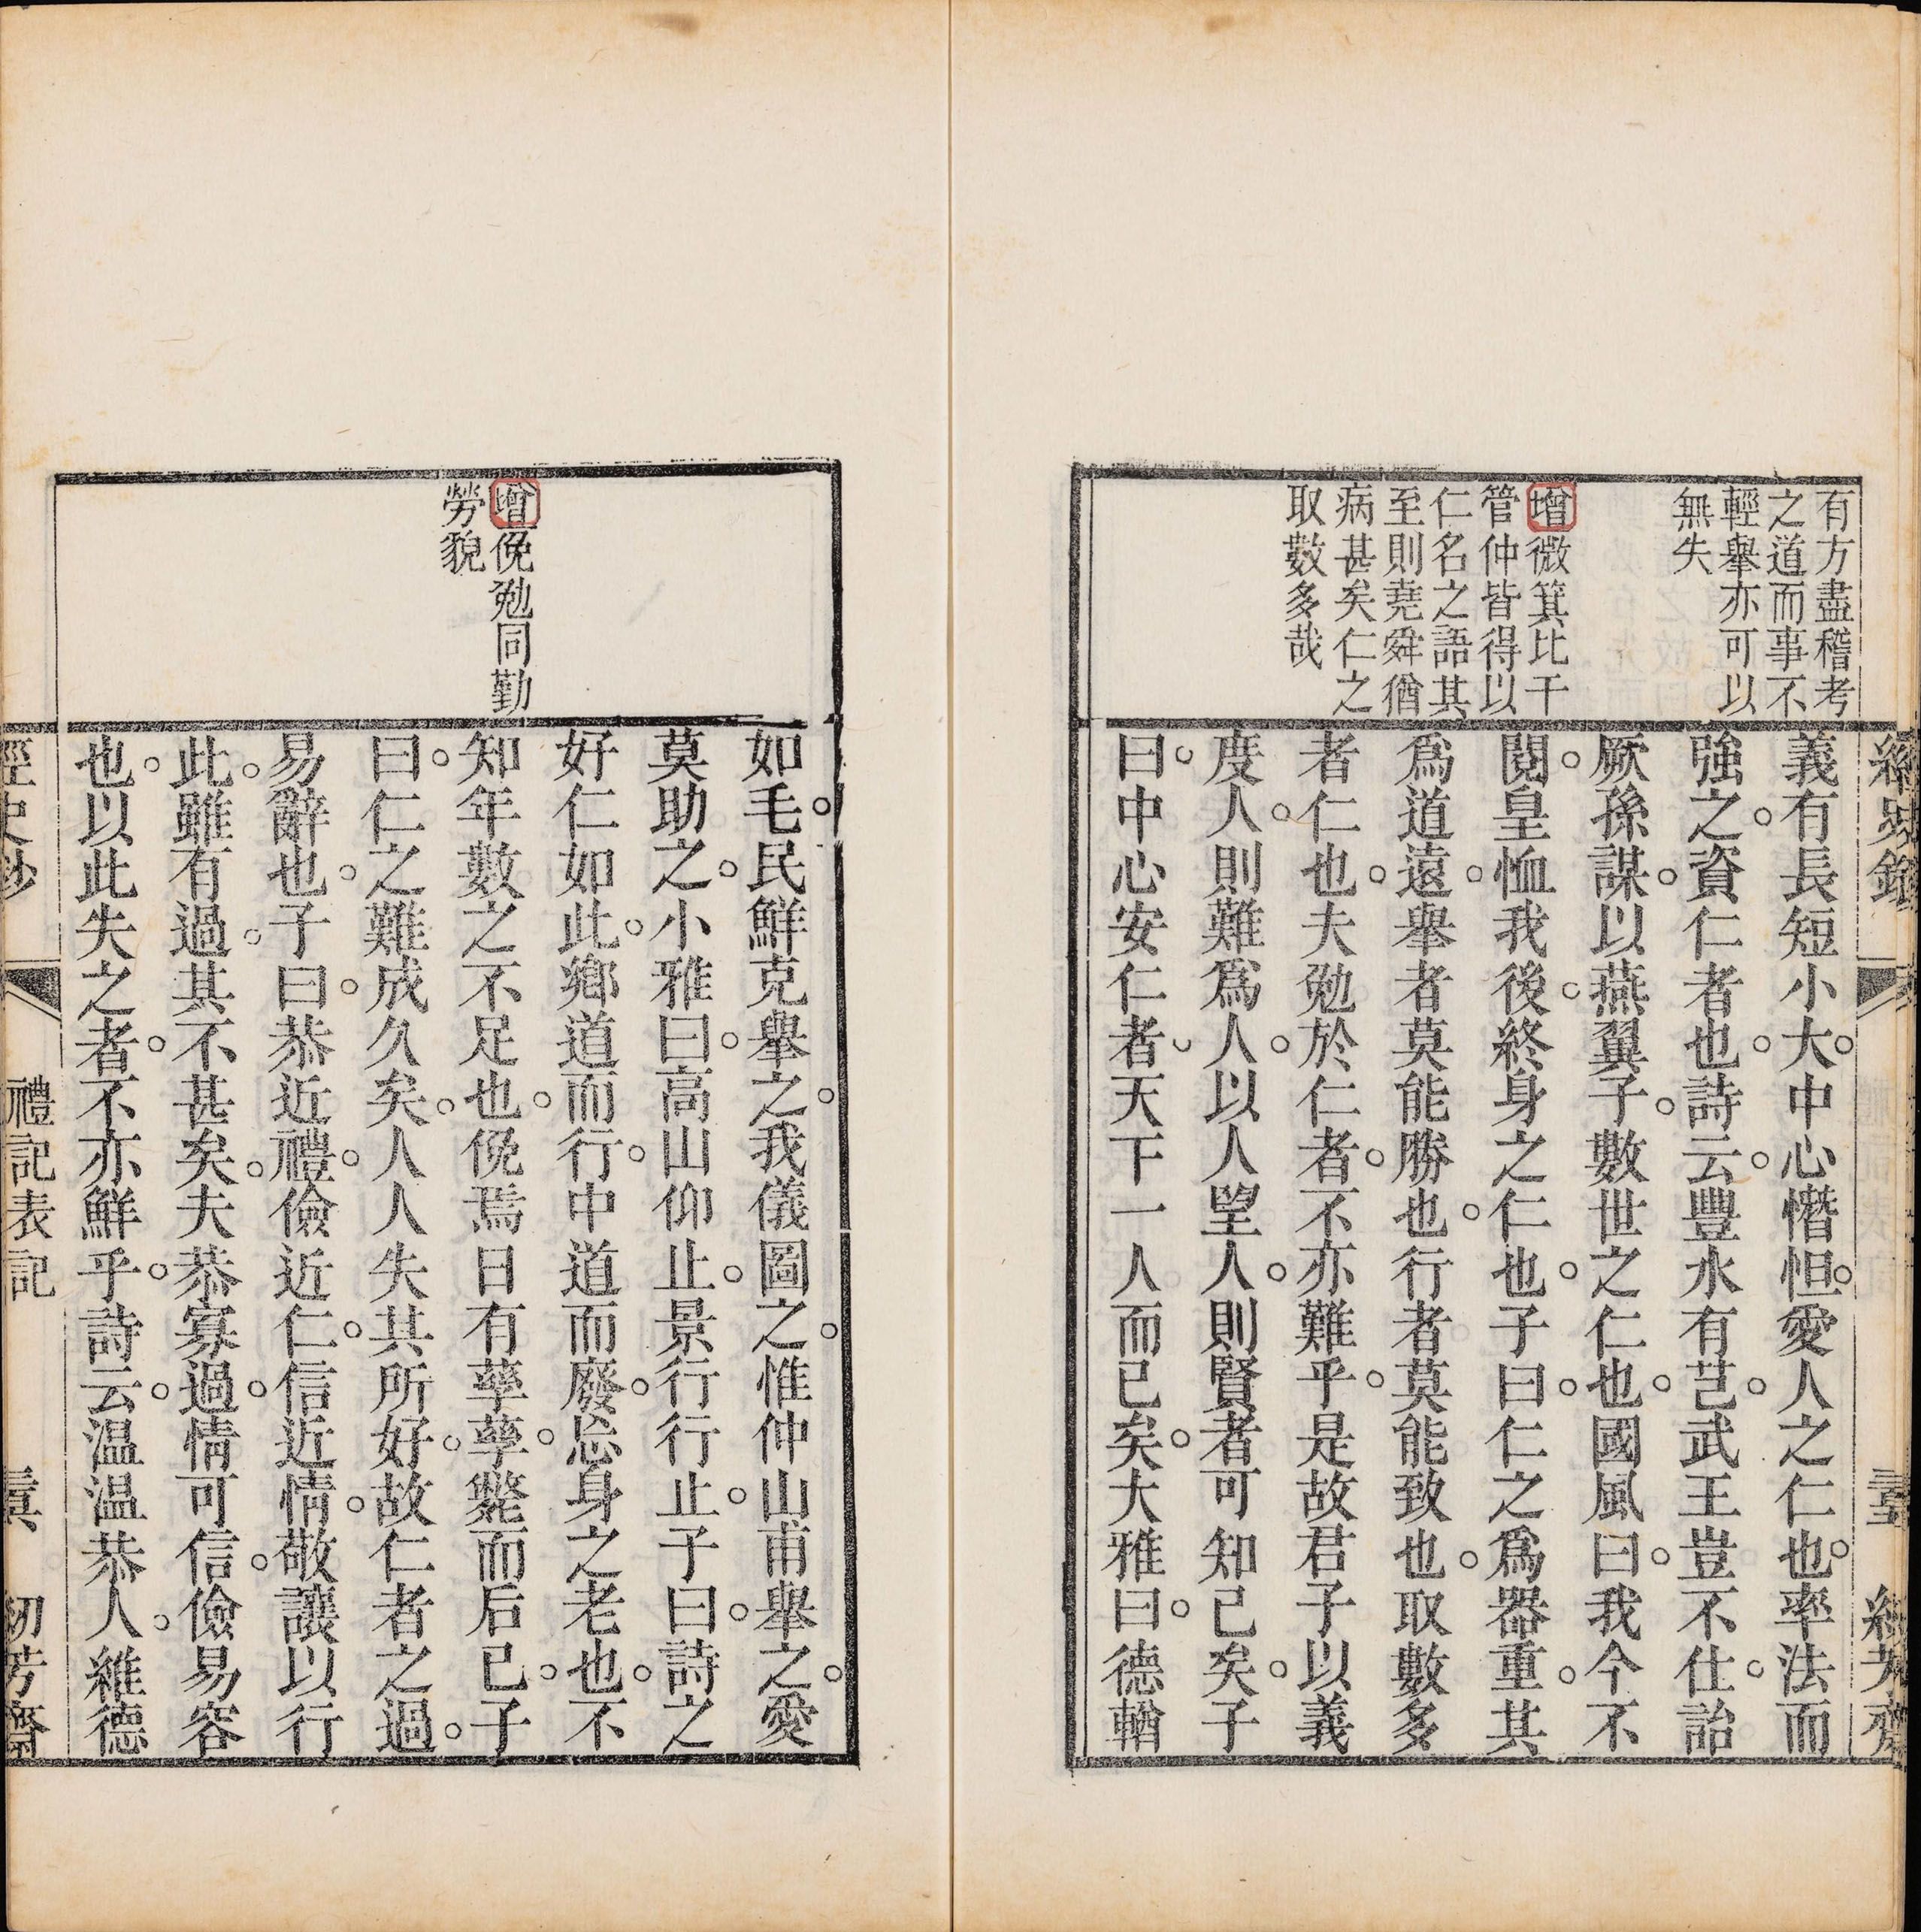 有方盡稽考
之道而事不
輕舉亦可以
無失
增微箕比干
管仲皆得以
仁名之語其
至則堯舜猶
病甚矣仁之
取數多哉
義有長短小大中心憯怛愛人之仁也率法而
強之資仁者也詩云豐水有芑武王豈不仕詒
厥孫謀以燕翼子數世之仁也國風曰我今不
閱皇恤我後終身之仁也子曰仁之為器重其
為道遠舉者莫能勝也行者莫能致也取數多
者仁也夫勉於仁者不亦難乎是故君子以義
度人則難為人以人望人則賢者可知已矣子
曰中心安仁者天下一人而已矣大雅曰德輶
增俛勉同勤
勞貌
如毛民鮮克舉之我儀圖之惟仲山甫舉之愛
莫助之小雅曰高山仰止景行行止子曰詩之
好仁如此鄉道而行中道而廢忘身之老也不
知年數之不足也俛焉日有孳孳斃而后已子
曰仁之難成久矣人人失其所好故仁者之過
易辭也子曰恭近禮儉近仁信近情敬讓以行
此雖有過其不甚矣夫恭寡過情可信儉易容
也以此失之者不亦鮮乎詩云温温恭人維德
經史鈔
禮記表記